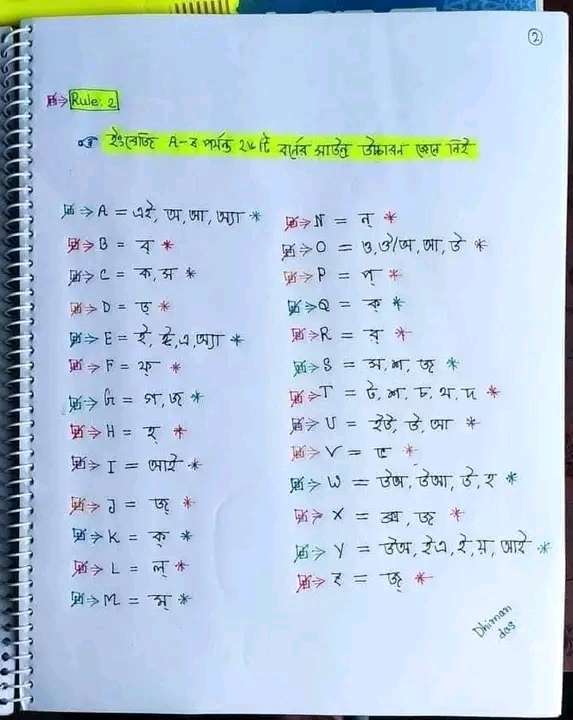 2
Rule: 2
ইংরেজি A-Z পর্যন্ত ২৬টি বর্নের সাউন্ড উচ্চারন জেনে নিই
⇒ A = এই, অ, আ, অ্যা *
⇒ B = ব্ *
⇒ C = ক, স *
⇒ D = ড্ *
⇒ E = ই, ঈ, এ, অ্যা *
⇒ F = ফ্ *
⇒ G = গ, জ্ *
⇒ H = হ্ *
⇒ I = আই *
⇒ J = জ্ *
⇒ K = ক্ *
⇒ L = ল্ *
⇒ M = ম্ *
⇒ N = ন্ *
⇒ O = ও, ঔ/অ, আ, উ *
⇒ P = প্ *
⇒ Q = ক্ *
⇒ R = র *
⇒ S = স, শ, জ্ *
⇒ T = ট, শ, চ, থ, দ *
⇒ U = ইউ, উ, আ *
⇒ V = ভ *
⇒ W = উঅ, উআ, উ, হ *
⇒ X = ক্স, জ্ *
⇒ Y = উঅ, ইএ, ই, য়, আই *
⇒ Z = জ্ *
Dhiman
das